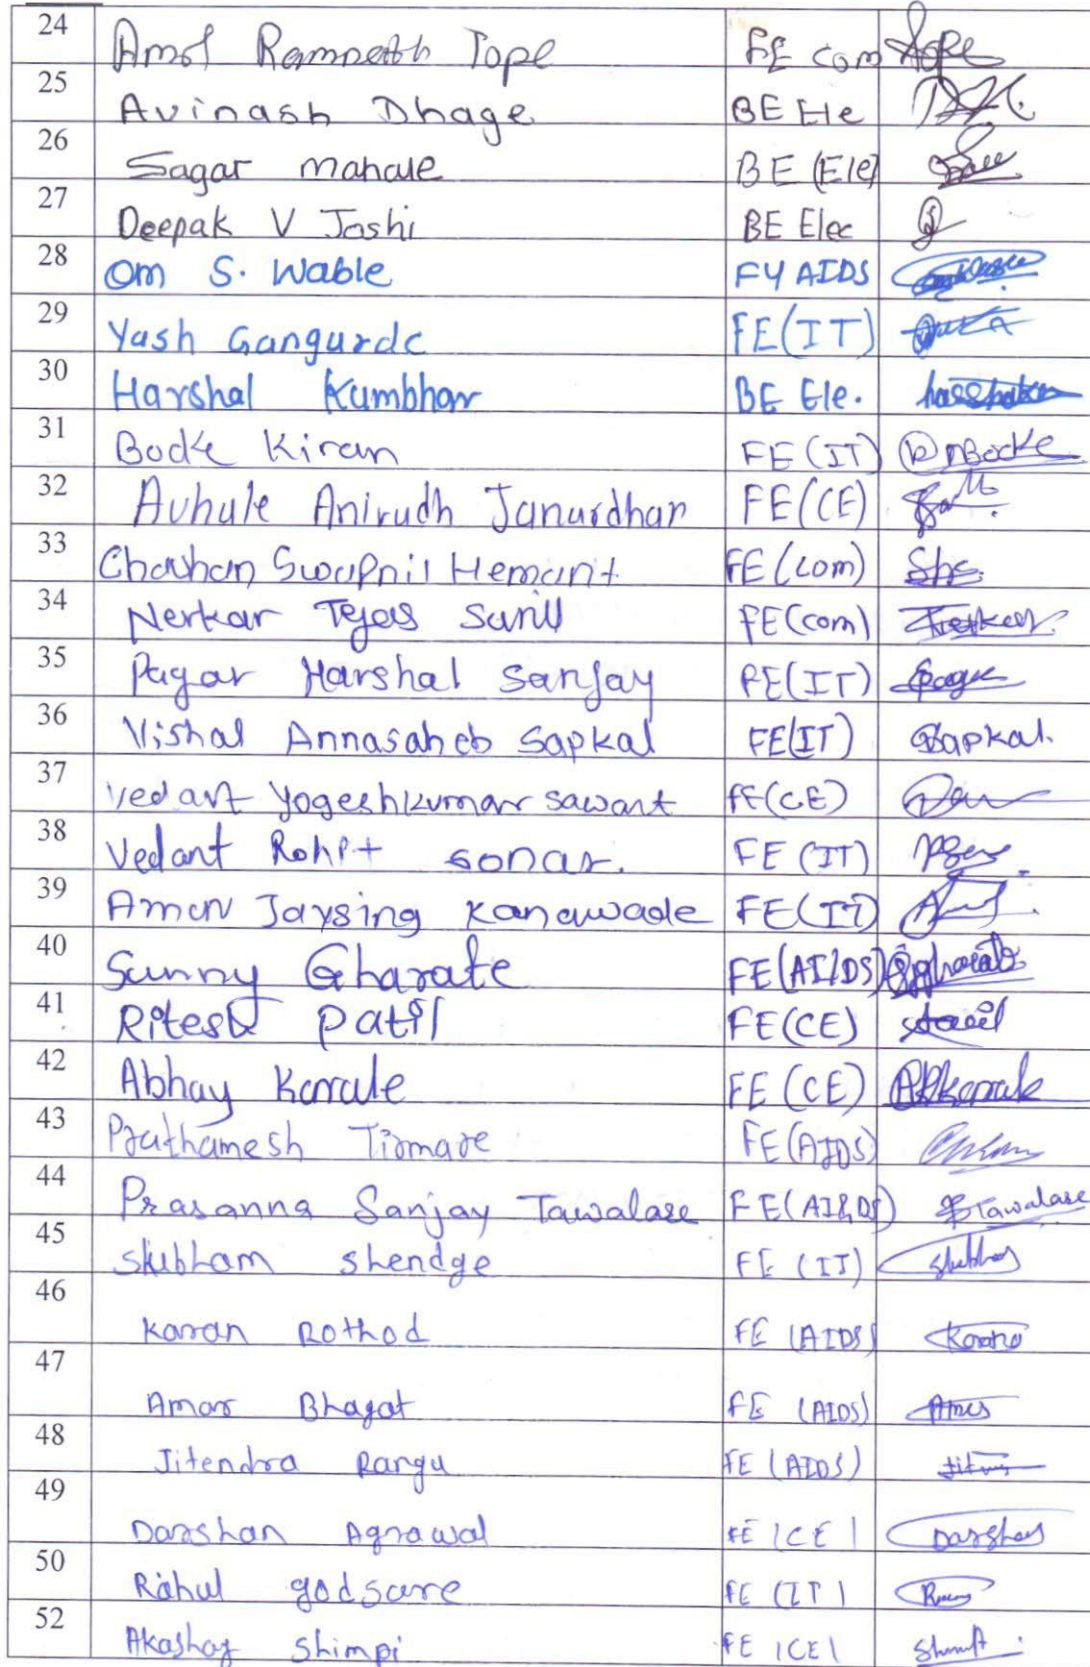 24 Amol Rampath Tope FE com Tope
25 Avinash Dhage BE Ele
26 Sagar mahale BE (Ele)
27 Deepak V Joshi BE Elec
28 Om S. Wable FY AIDS
29 Yash Gangurde FE(IT)
30 Harshal Kumbhar BE Ele.
31 Bodke Kiran FE (IT)
32 Avhule Anirudh Janardhan FE(CE)
33 Chavhan Swapnil Hemant FE(com)
34 Nerkar Tejas Sunil FE(com)
35 Pagar Harshal Sanjay FE(IT)
36 Vishal Annasaheb Sapkal FE(IT) Sapkal.
37 vedant Yogeshkumar sawant FE(CE)
38 Vedant Rohit sonar. FE (IT)
39 Aman Jaysing Kanawade FE(IT)
40 Sunny Gharate FE(AI/DS)
41 Ritesh Patil FE(CE)
42 Abhay Karale FE (CE)
43 Prathamesh Tirmare FE(AIDS)
44 Prasanna Sanjay Tawalare FE(AI&DS) Tawalare
45 Shubham shendge FE (IT)
46 Karan Rothod FE (AIDS)
47 Amar Bhagat FE (AIDS)
48 Jitendra Rangu FE (AIDS)
49 Darshan Agrawal FE (CE) Darshan
50 Rahul godsare FE (IT)
52 Akashay Shimpi FE (CE)